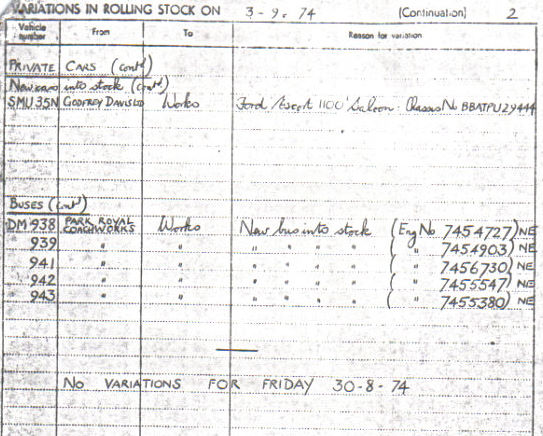 VARIATIONS IN ROLLING STOCK ON 3-9-74 (Continuation) 2
Vehicle number From To Reason for variation
PRIVATE CARS (contd)
New cars into stock (contd)
SMU 35N GODFREY DAVIS LTD Works Ford Escort 1100 Saloon: Chassis No BBATPU29444
BUSES (contd)
DM 938 PARK ROYAL COACHWORKS Works New bus into stock (Eng No 7454727) NE
939 " " " " " " ( " 7454903) NE
941 " " " " " " ( " 7456730) NE
942 " " " " " " ( " 7455547) NE
943 " " " " " " ( " 7455380) NE
NO VARIATIONS FOR FRIDAY 30-8-74